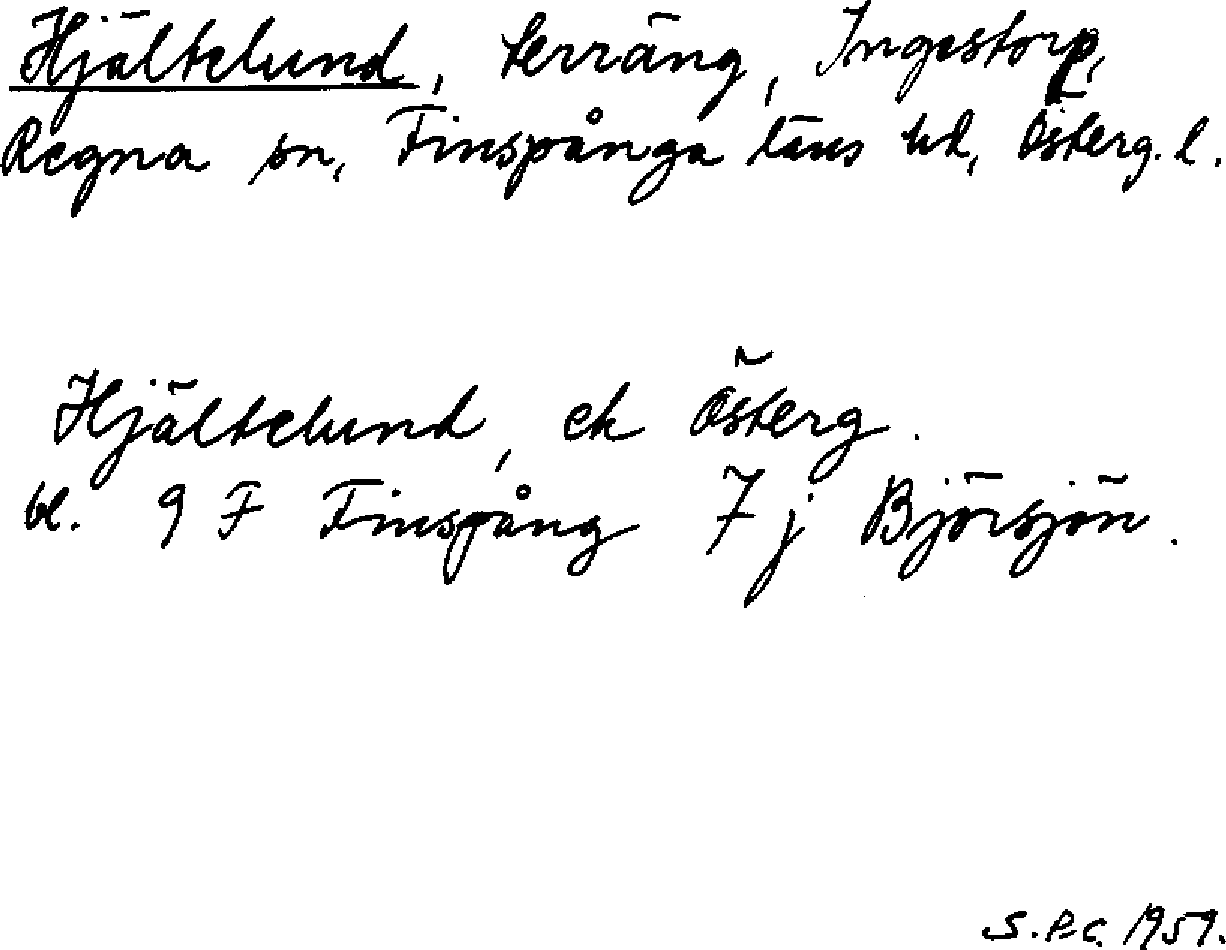 Hjältelund, terräng, Ingestorp,
Regna sn, Finspånga läns hd, Österg. l.
Hjältelund, ek Österg.
bl. 9 F Finspång 7 j Björsjön.
S.P-C. 1959.